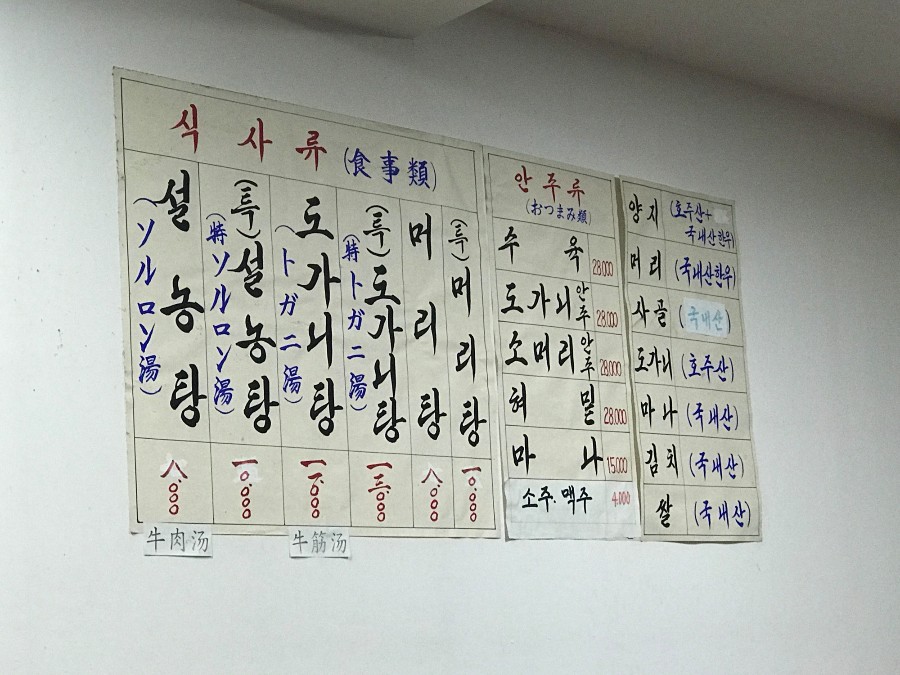 식사류 (食事類)
설농탕
(ソルロン湯)
八,000
(특)설농탕
(特ソルロン湯)
一0,000
도가니탕
(トガニ湯)
(특)도가니탕
(特トガニ湯)
一三,000
머리탕
八,000
(특)머리탕
一0,000
牛肉汤
牛筋汤
안주류
(おつまみ類)
수육 28,000
도가니안주 28,000
소머리안주 28,000
혀밑 28,000
마나 15,000
소주.맥주 4,000
양지 (호주산+
국내산한우)
머리 (국내산한우)
사골 (국내산)
도가니 (호주산)
마나 (국내산)
김치 (국내산)
쌀 (국내산)